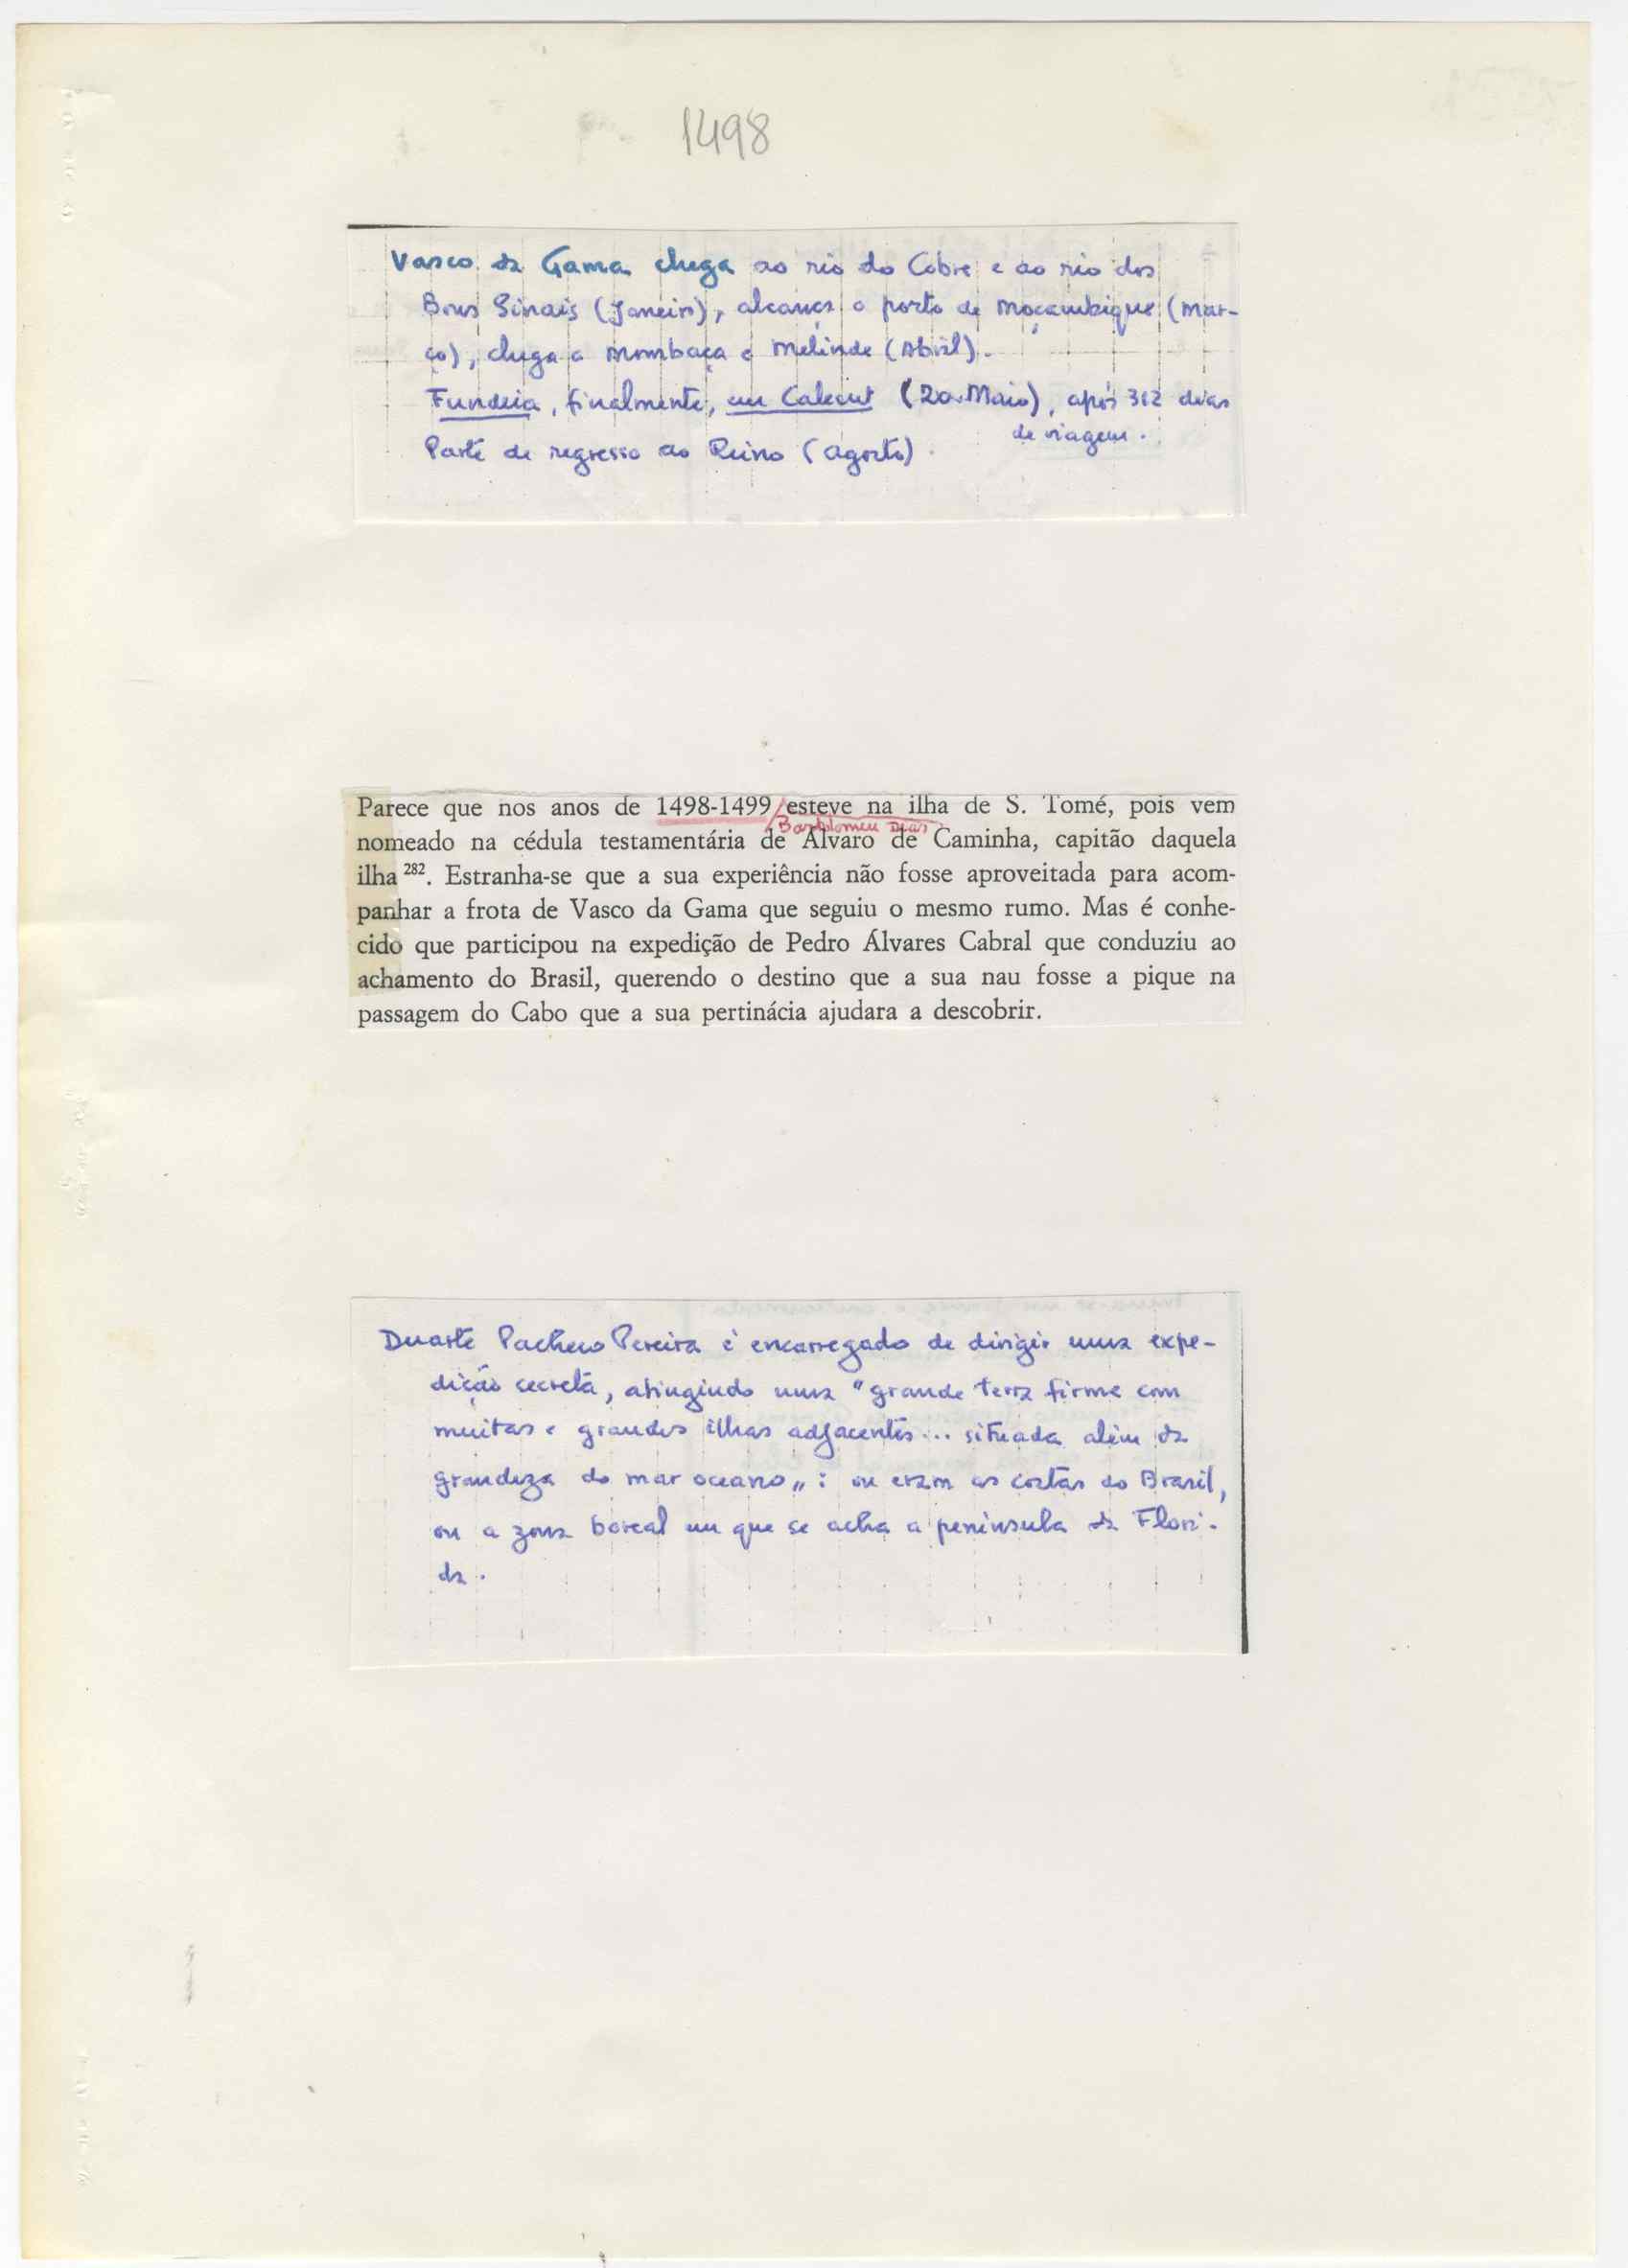 1498
Vasco da Gama chega ao rio do Cobre e ao rio dos
Bons Sinais (Janeiro), alcança o porto de Moçambique (Mar-
ço), chega a Mombaça e Melinde (Abril).
Fundeia, finalmente, em Calecut (20.Maio), após 312 dias
de viagem.
Parte de regresso ao Reino (Agosto)
Parece que nos anos de 1498-1499 esteve na ilha de S. Tomé, pois vem
Bartolomeu Dias
nomeado na cédula testamentária de Álvaro de Caminha, capitão daquela
ilha 282. Estranha-se que a sua experiência não fosse aproveitada para acom-
panhar a frota de Vasco da Gama que seguiu o mesmo rumo. Mas é conhe-
cido que participou na expedição de Pedro Álvares Cabral que conduziu ao
achamento do Brasil, querendo o destino que a sua nau fosse a pique na
passagem do Cabo que a sua pertinácia ajudara a descobrir.
Duarte Pacheco Pereira é encarregado de dirigir uma expe-
dição secreta, atingindo uma "grande terra firme com
muitas e grandes ilhas adjacentes... situada além da
grandeza do mar oceano": ou eram as costas do Brasil,
ou a zona boreal em que se acha a península da Flori-
da.